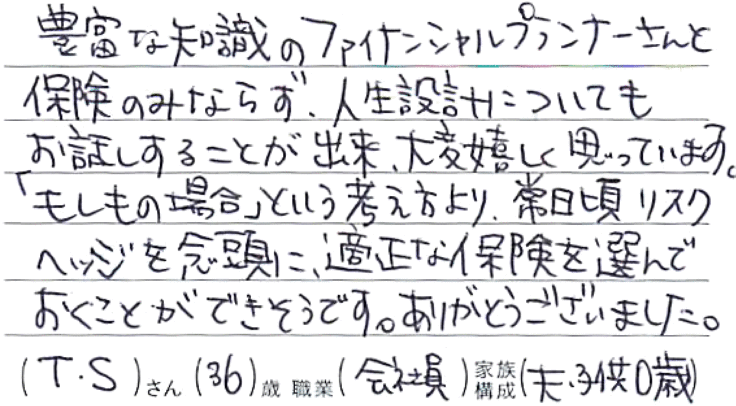 豊富な知識のファイナンシャルプランナーさんと
保険のみならず、人生設計についても
お話しすることが出来、大変嬉しく思っています。
「もしもの場合」という考え方より、常日頃リスク
ヘッジを念頭に、適正な保険を選んで
おくことができそうです。ありがとうございました。
(T.S)さん (36)歳 職業(会社員)家族構成(夫、子供0歳)